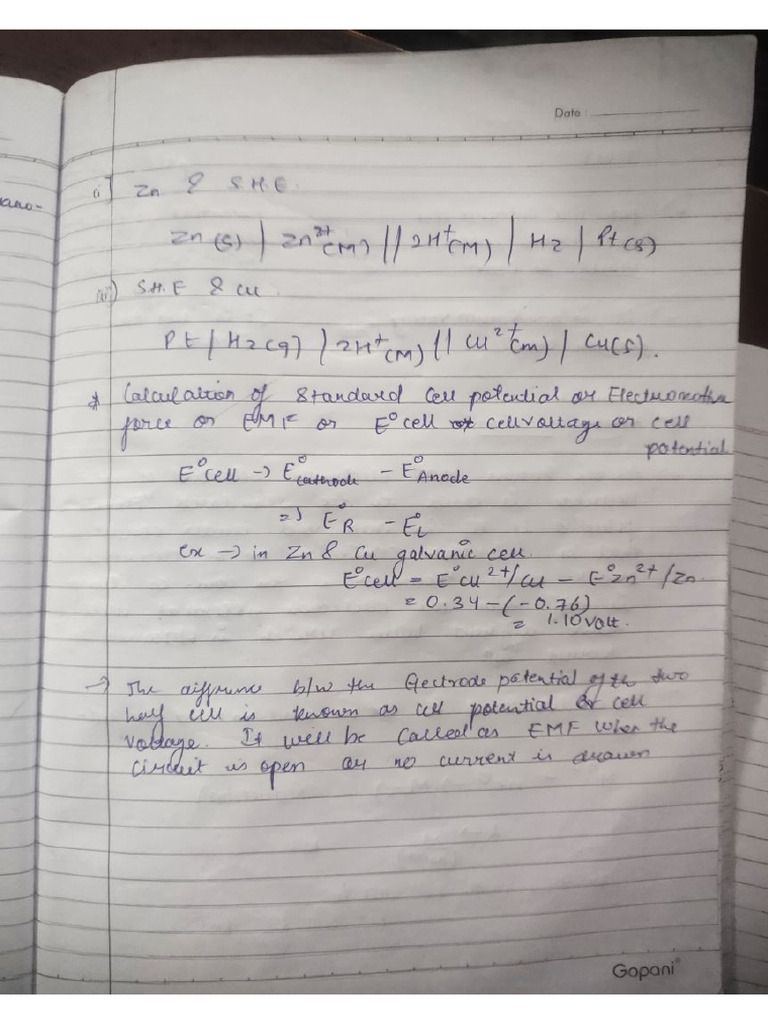 ano-
Date :
(i) Zn & S.H.E.
Zn(s) | Zn²⁺(M) || 2H⁺(M) | H2 | Pt(s)
(ii) S.H.E & Cu
Pt | H2(g) | 2H⁺(M) || Cu²⁺(m) | Cu(s).
* Calculation of Standard Cell potential or Electromotive
force or EMF or E°cell or cell voltage or cell
potential
E°cell → E°cathode - E°Anode
=> E°R - E°L
Ex → in Zn & Cu galvanic cell.
E°cell = E°Cu²⁺/Cu - E°Zn²⁺/Zn
= 0.34 - (-0.76)
= 1.10 volt.
→ The diffrence b/w the Electrode potential of the two
half cell is known as cell potential or cell
voltage. It will be called as EMF when the
circuit is open or no current is drawn
Gopani